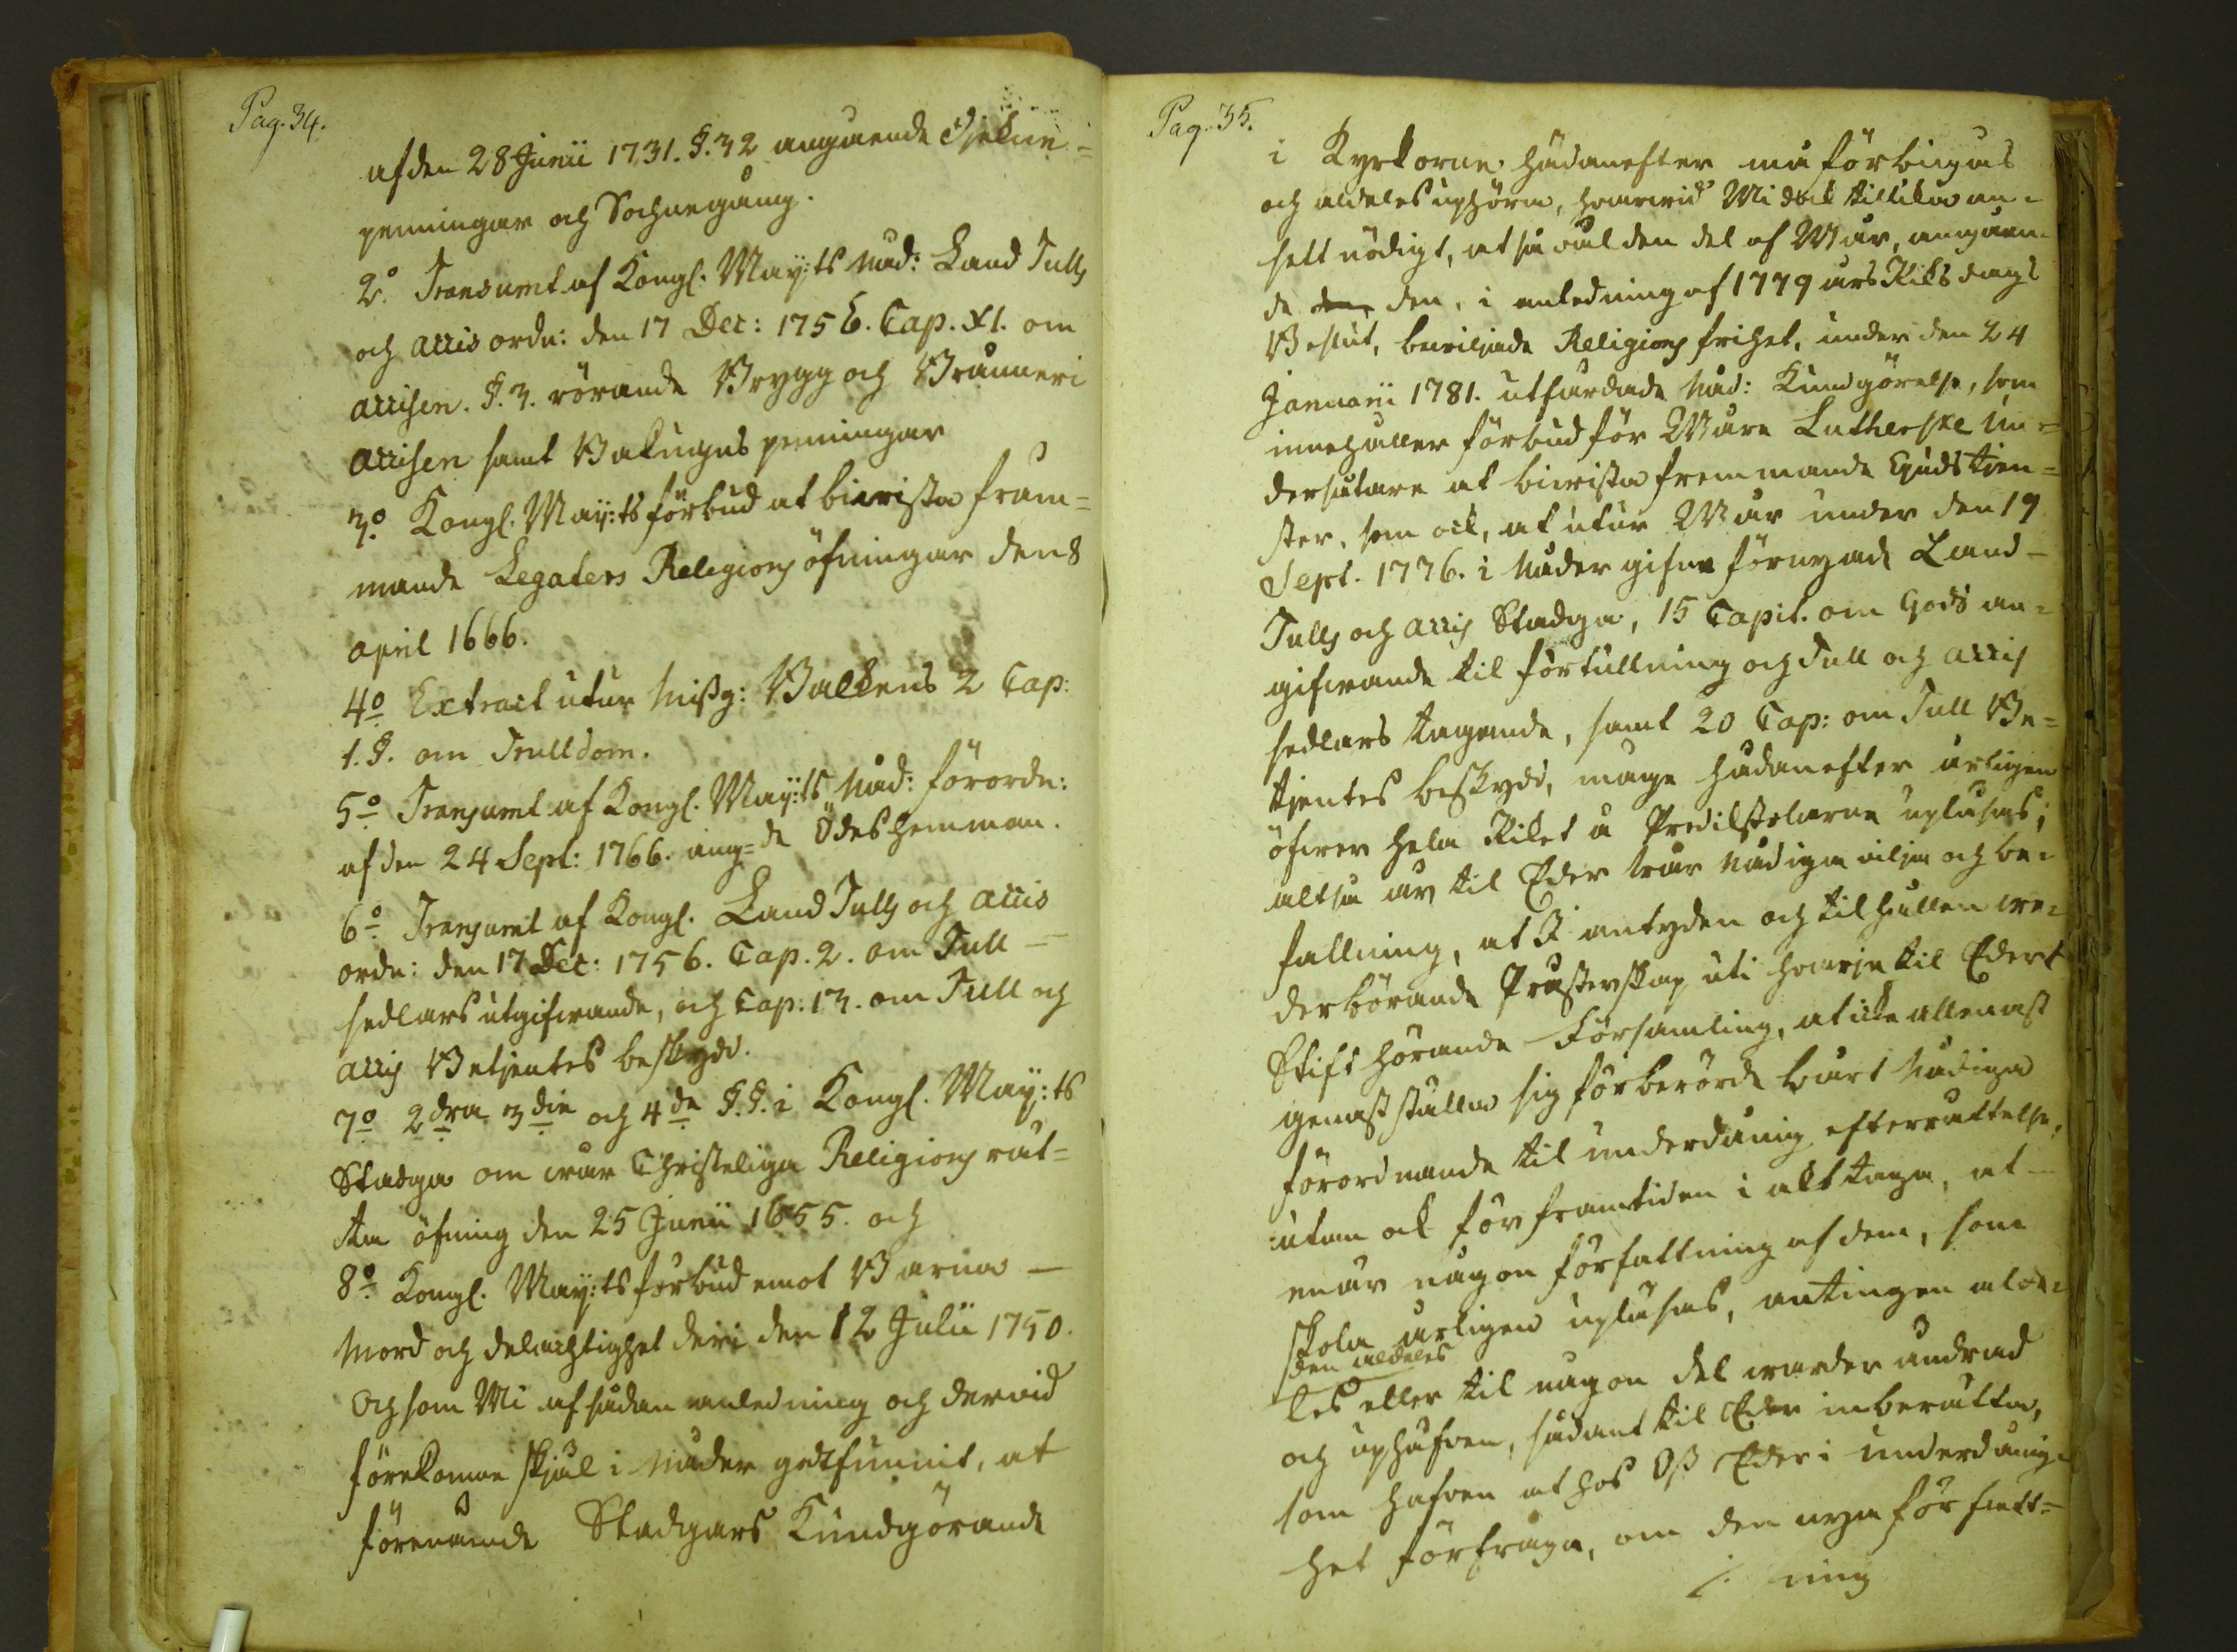 Pag. 34.
af den 28 Junii 1731. §. 32 angående Djekne-
penningar och Sochnegång.
2:o Transumt af Kongl. May:ts Nåd: Land Tulls
och Accis ordn: den 17 Dec: 1756. Cap. XI. om
Accisen. §. 3. rörande Brygg och Bränneri
Accisen samt Bakugns penningar
3:o Kongl. May:ts förbud at bivista främ=
mande Legaters Religions öfningar den 8
April 1666.
4:o Extract utur Missg: Balkens 2 Cap:
1. §. om Trulldom.
5:o Transumt af Kongl. May:ts Nåd: förordn:
af den 24 Sept: 1766. ang=de Ödeshemman.
6:o Transumt af Kongl. Land Tulls och Accis
ordn: den 17 Dec: 1756. Cap. 2. om Tull-
sedlars utgifwande, och Cap. 13. om Tull och
Accis Betjentes beskydd.
7:o 2dra 3die och 4de §. §. i Kongl. May:ts
Stadga om wår Christeliga Religions rät=
ta öfning den 25 Junii 1655. och
8:o Kongl. May:ts förbud emot Barna-
Mord och delachtighet deri den 12 Julii 1750.
Och som Wi af sådan anledning och dervid
förekomne skjäl i Nåder godtfunnit, at
förenämde Stadgars Kundgörande
Pag. 35.
i Kyrkorne hädanefter må förbigås
och aldeles uphöra, hvarvid Wi dock tillika an-
sett nödigt, at så väl den del af Wår, angåen-
de den, i anledning af 1779 års Riksdags
Beslut, beviljade Religions frihet, under den 24
Januarii 1781. utfärdade Nåd: Kundgörelse, som
innehåller förbud för Wåra Lutherske Un=
dersåtare at bivista fremmande Gudstjen=
ster, som ock, at utur Wår under den 19
Sept. 1776. i Nåder gifne förnyade Land-
Tulls och Accis Stadga, 15 Capit. om Gods an=
gifwande til förtullning och Tull och Accis
sedlars tagande, samt 20 Cap: om Tull Be=
tjentes beskydd, måge hädanefter årligen
öfwer hela Riket å Predikstolarne upläsas;
altså är til Eder Wår Nådiga vilja och be-
fallning, at I antyden och tilhållen we-
derbörande Prästerskap uti hvarje til Edert
Stift hörande Församling, at icke allenast
genast ställa sig förberörde Wårt Nådiga
förordnande til underdånig efterrättelse,
utan ock för framtiden i akttaga, at
enär någon författning af dem, som
skola årligen upläsas, antingen alde-
den aldeles
les eller til någon del warder ändrad
och uphäfven, sådant til Eder inberätta,
som hafven at hos Oss Eder i underdånig-
het förfråga, om den nya författ=
/. ning